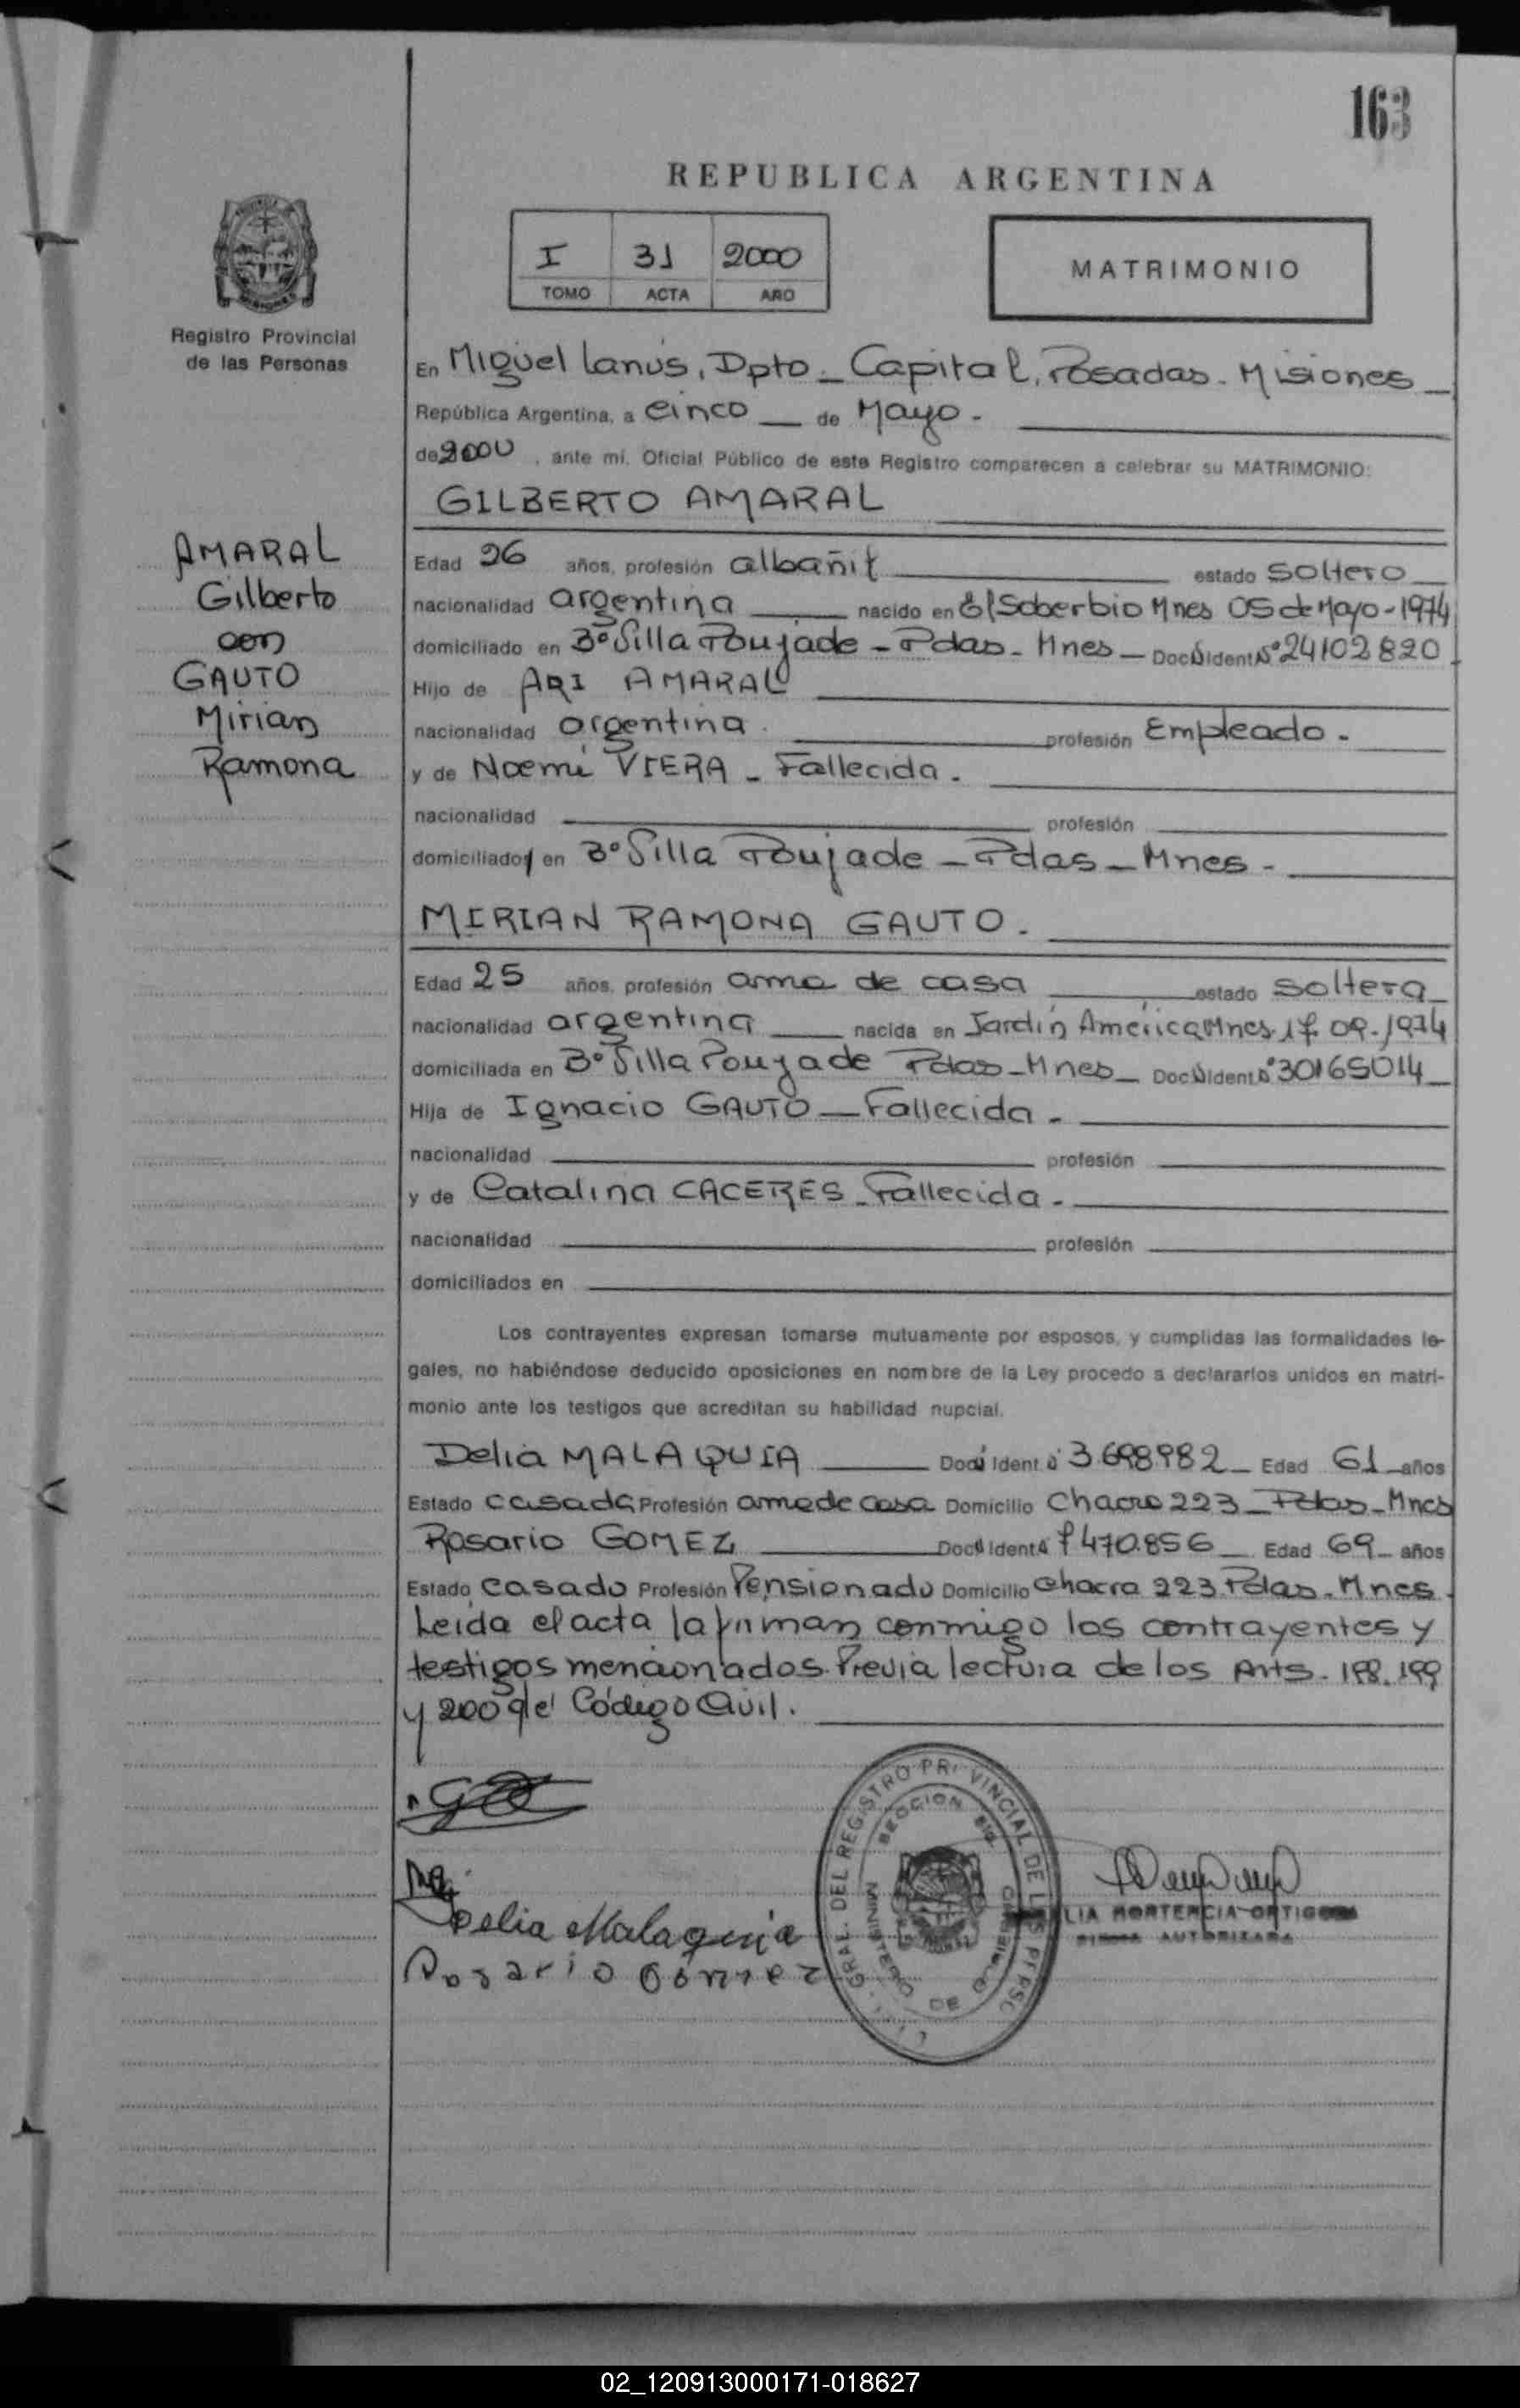 163
REPUBLICA ARGENTINA
I 31 2000
TOMO ACTA AÑO
MATRIMONIO
Registro Provincial
de las Personas
En Miguel Lanús, Dpto - Capital, Posadas - Misiones
República Argentina, a cinco de Mayo -
de 2000, ante mí, Oficial Público de este Registro comparecen a celebrar su MATRIMONIO:
GILBERTO AMARAL
AMARAL
Gilberto
con
GAUTO
Mirian
Ramona
Edad 26 años, profesión albañil estado soltero
nacionalidad argentina nacido en El Soberbio Mnes 05 de Mayo - 1974
domiciliado en Bº Villa Poujade - Pdas - Mnes - Doc Ident Nº 24102820
Hijo de ARI AMARAL
nacionalidad argentina profesión Empleado -
y de Noemi VIERA - Fallecida -
nacionalidad profesión
domiciliados en Bº Villa Poujade - Pdas - Mnes -
MIRIAN RAMONA GAUTO -
Edad 25 años, profesión ama de casa estado soltera
nacionalidad argentina nacida en Jardín América Mnes 17 09-1974
domiciliada en Bº Villa Poujade Pdas - Mnes - Doc Ident Nº 30165014
Hija de Ignacio GAUTO - Fallecida -
nacionalidad profesión
y de Catalina CACERES - Fallecida -
nacionalidad profesión
domiciliados en
Los contrayentes expresan tomarse mutuamente por esposos, y cumplidas las formalidades le-
gales, no habiéndose deducido oposiciones en nombre de la Ley procedo a declararlos unidos en matri-
monio ante los testigos que acreditan su habilidad nupcial.
Delia MALAQUIA Doc Ident 3.698982 - Edad 61 años
Estado casada Profesión ama de casa Domicilio Chacra 223 - Pdas - Mnes
Rosario GOMEZ Doc Ident 7470.856 - Edad 69 - años
Estado casado Profesión Pensionado Domicilio Chacra 223 Pdas - Mnes
Leida el acta la firman conmigo los contrayentes y
testigos mencionados. Previa lectura de los Arts. 198. 199
y 200 del Código Civil.
Delia Malaquia
Rosario Gomez
GRAL. DEL REGISTRO PROVINCIAL DE LAS PERS
SECCION
MINISTERIO DE GOBIERNO
LIA HORTENCIA ORTIGOZA
FIRMA AUTORIZADA
02_120913000171-018627